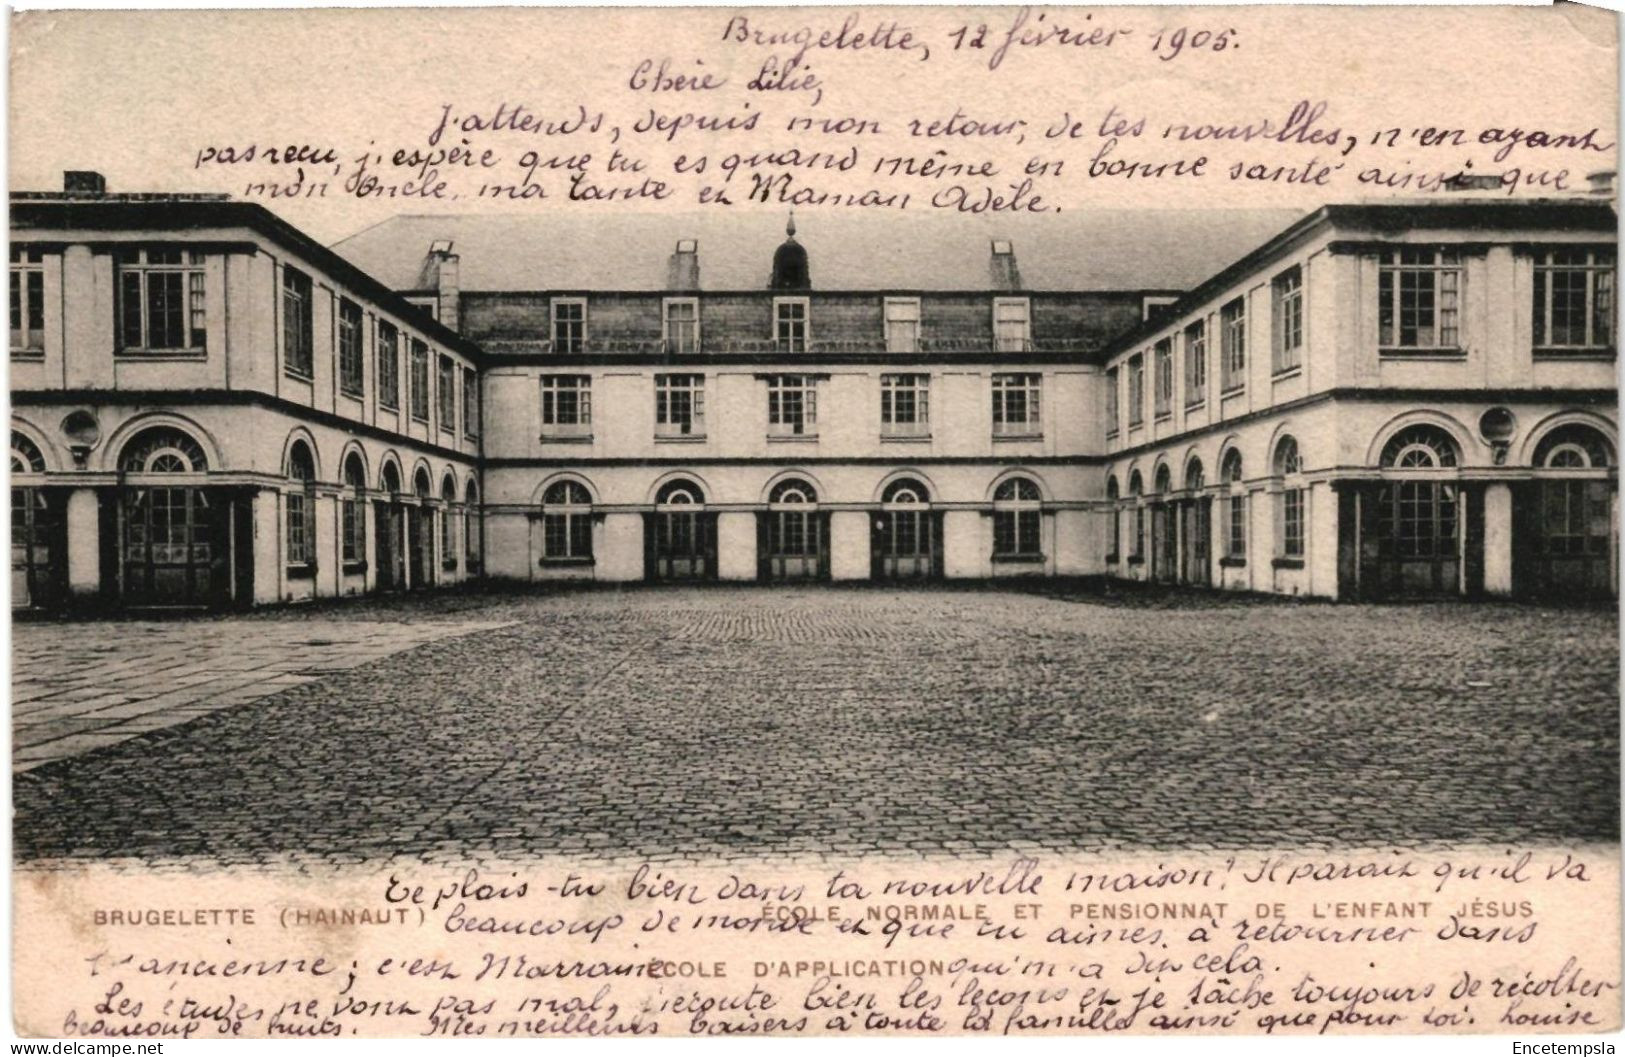 Brugelette, 12 février 1905.
Chère Lilie,
J'attends, depuis mon retour, de tes nouvelles, n'en ayant
pas reçu, j'espère que tu es quand même en bonne santé ainsi que
mon Oncle, ma tante et Maman Adèle.
Te plais-tu bien dans ta nouvelle maison? Il parait qu'il va
BRUGELETTE (HAINAUT) ÉCOLE NORMALE ET PENSIONNAT DE L'ENFANT JÉSUS
beaucoup de monde et que tu aimes à retourner dans
l'ancienne; c'est Marraine qui m'a dit cela.
ÉCOLE D'APPLICATION
Les études ne vont pas mal, j'écoute bien les leçons et je tâche toujours de récolter
beaucoup de fruits. Mes meilleurs baisers à toute la famille ainsi que pour toi. Louise
delcampe.net
Encetempsla